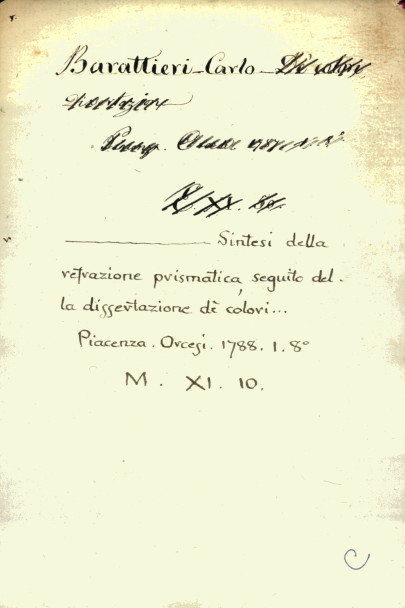 Barattieri Carlo
Sintesi della
refrazione prismatica, seguito del-
la dissertazione dè colori...
Piacenza. Orcesi. 1788. 1. 8°
M. XI. 10.
C